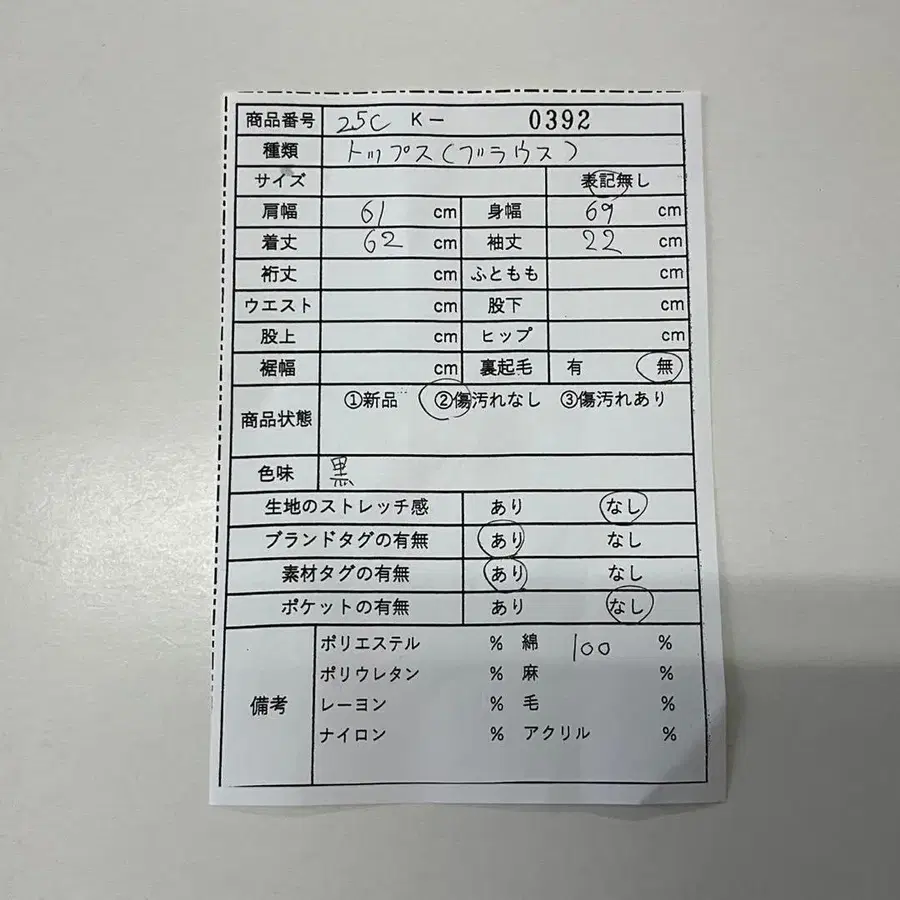 商品番号 25C K- 0392
種類 トップス(ブラウス)
サイズ 表記無し
肩幅 61 cm 身幅 69 cm
着丈 62 cm 袖丈 22 cm
裄丈 cm ふともも cm
ウエスト cm 股下 cm
股上 cm ヒップ cm
裾幅 cm 裏起毛 有 無
商品状態 ①新品 ②傷汚れなし ③傷汚れあり
色味 黒
生地のストレッチ感 あり なし
ブランドタグの有無 あり なし
素材タグの有無 あり なし
ポケットの有無 あり なし
備考
ポリエステル % 綿 100 %
ポリウレタン % 麻 %
レーヨン % 毛 %
ナイロン % アクリル %